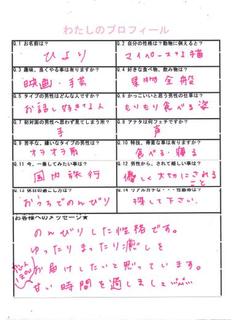 わたしのプロフィール
Q.1 お名前は?
ひより
Q.2 自分の性格は?動物に例えると?
マイペースな猫
Q.3 趣味、良くやる事は有りますか?
映画・手芸
Q.4 好きな食べ物、飲み物は?
果物全般
Q.5 タイプの男性はどんな人ですか?
お話し好きな人
Q.6 かっこいいと思う男性の仕事は?
もりもり食べる姿
Q.7 初対面の男性へ思わず見てしまう所?
手
Q.8 アナタは何フェチですか?
声
Q.9 苦手な、嫌いなタイプの男性は?
オラオラ系
Q.10 特技、得意な事は有りますか?
食べる・寝る
Q.11 今、一番してみたい事は?
国内旅行
Q.12 男性から、されて嬉しい事は?
優しく大切にされること
Q.13 休日の過ごし方は?
おうちでのんびり
探して下さい。
お客様へのメッセージ★
のんびりした性格です。
ゆったりまったり癒しを
お届けしたいと思っています。
甘い時間を過しましょ